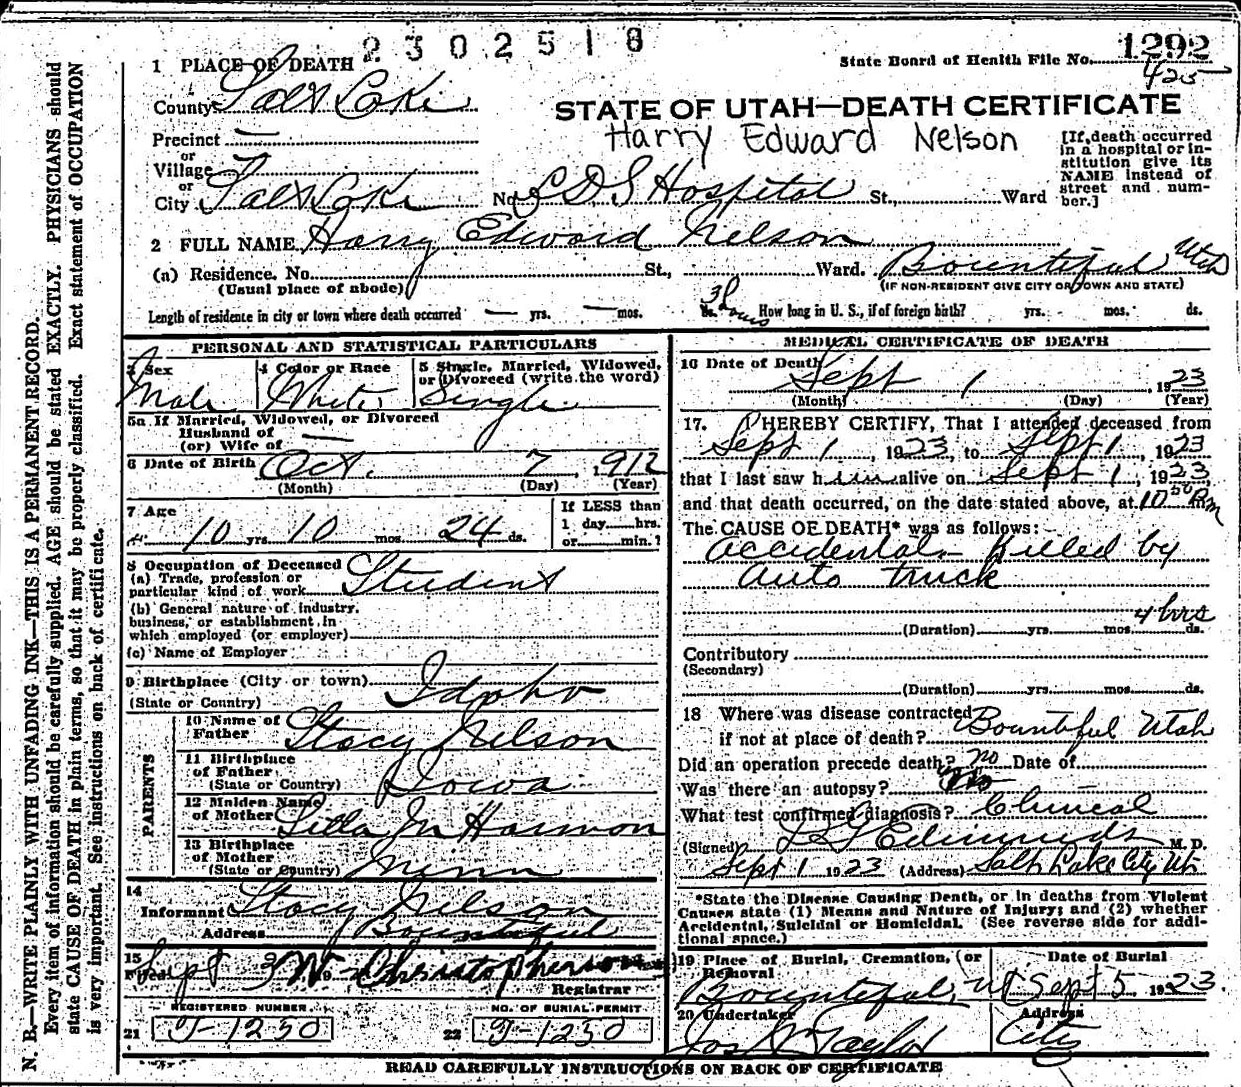 2302518
State Board of Health File No. 1292
425
1 PLACE OF DEATH
County Salt Lake
STATE OF UTAH—DEATH CERTIFICATE
Harry Edward Nelson
Precinct —
or
Village
or
City Salt Lake No. LDS Hospital St., Ward
[If death occurred in a hospital or institution give its NAME instead of street and number.]
2 FULL NAME Harry Edward Nelson
(a) Residence. No. St., Ward. Bountiful Utah
(Usual place of abode) (IF NON-RESIDENT GIVE CITY OR TOWN AND STATE)
Length of residence in city or town where death occurred — yrs. — mos. 3 hours ds. How long in U. S., if of foreign birth? yrs. mos. ds.
PERSONAL AND STATISTICAL PARTICULARS
3 Sex Male
4 Color or Race White
5 Single, Married, Widowed, or Divorced (write the word) Single
5a If Married, Widowed, or Divorced
Husband of
(or) Wife of —
6 Date of Birth Oct. 7 1912
(Month) (Day) (Year)
7 Age
10 yrs. 10 mos. 24 ds.
If LESS than
1 day hrs.
or min.?
8 Occupation of Deceased
(a) Trade, profession or
particular kind of work Student
(b) General nature of industry,
business, or establishment in
which employed (or employer)
(c) Name of Employer
9 Birthplace (City or town)
(State or Country) Idaho
PARENTS
10 Name of
Father Stacy Nelson
11 Birthplace
of Father
(State or Country) Iowa
12 Maiden Name
of Mother Lilla M Harmon
13 Birthplace
of Mother
(State or Country) Minn
14
Informant Stacy Nelson
Address Bountiful
15
Filed Sept 3 W. Christopherson
Registrar
REGISTERED NUMBER. NO. OF BURIAL PERMIT
21 J-1230 22 J-1230
MEDICAL CERTIFICATE OF DEATH
16 Date of Death Sept 1 1923
(Month) (Day) (Year)
17. I HEREBY CERTIFY, That I attended deceased from
Sept 1, 1923, to Sept 1, 1923
that I last saw him alive on Sept 1, 1923,
and that death occurred, on the date stated above, at 10 50 P.m
The CAUSE OF DEATH* was as follows:
accidental - Killed by
auto truck
4 hrs
(Duration) yrs. mos. ds.
Contributory
(Secondary)
(Duration) yrs. mos. ds.
18 Where was disease contracted
if not at place of death? Bountiful Utah
Did an operation precede death? no Date of
Was there an autopsy? No
What test confirmed diagnosis? Clinical
(Signed) Edmunds M. D.
Sept 1 1923 (Address) Salt Lake City Ut
*State the Disease Causing Death, or in deaths from Violent
Causes state (1) Means and Nature of Injury; and (2) whether
Accidental, Suicidal or Homicidal. (See reverse side for addi-
tional space.)
19 Place of Burial, Cremation, or Removal Date of Burial
Bountiful, Ut Sept 5 1923.
20 Undertaker Address
Jos Wm Taylor City
READ CAREFULLY INSTRUCTIONS ON BACK OF CERTIFICATE
N. B.—WRITE PLAINLY WITH UNFADING INK—THIS IS A PERMANENT RECORD.
Every item of information should be carefully supplied. AGE should be stated EXACTLY. PHYSICIANS should
state CAUSE OF DEATH in plain terms, so that it may be properly classified. Exact statement of OCCUPATION
is very important. See instructions on back of certificate.